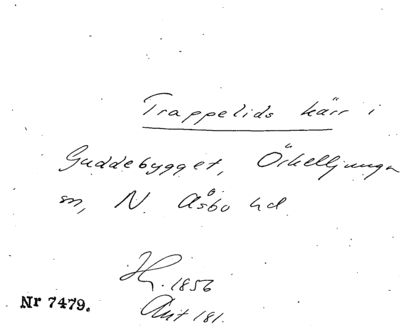 Trappelids kärr i
Guddebygget, Örkelljunga
sn, N. Åsbo hd.
Hg. 1856
Ant 181.
Nr 7479.